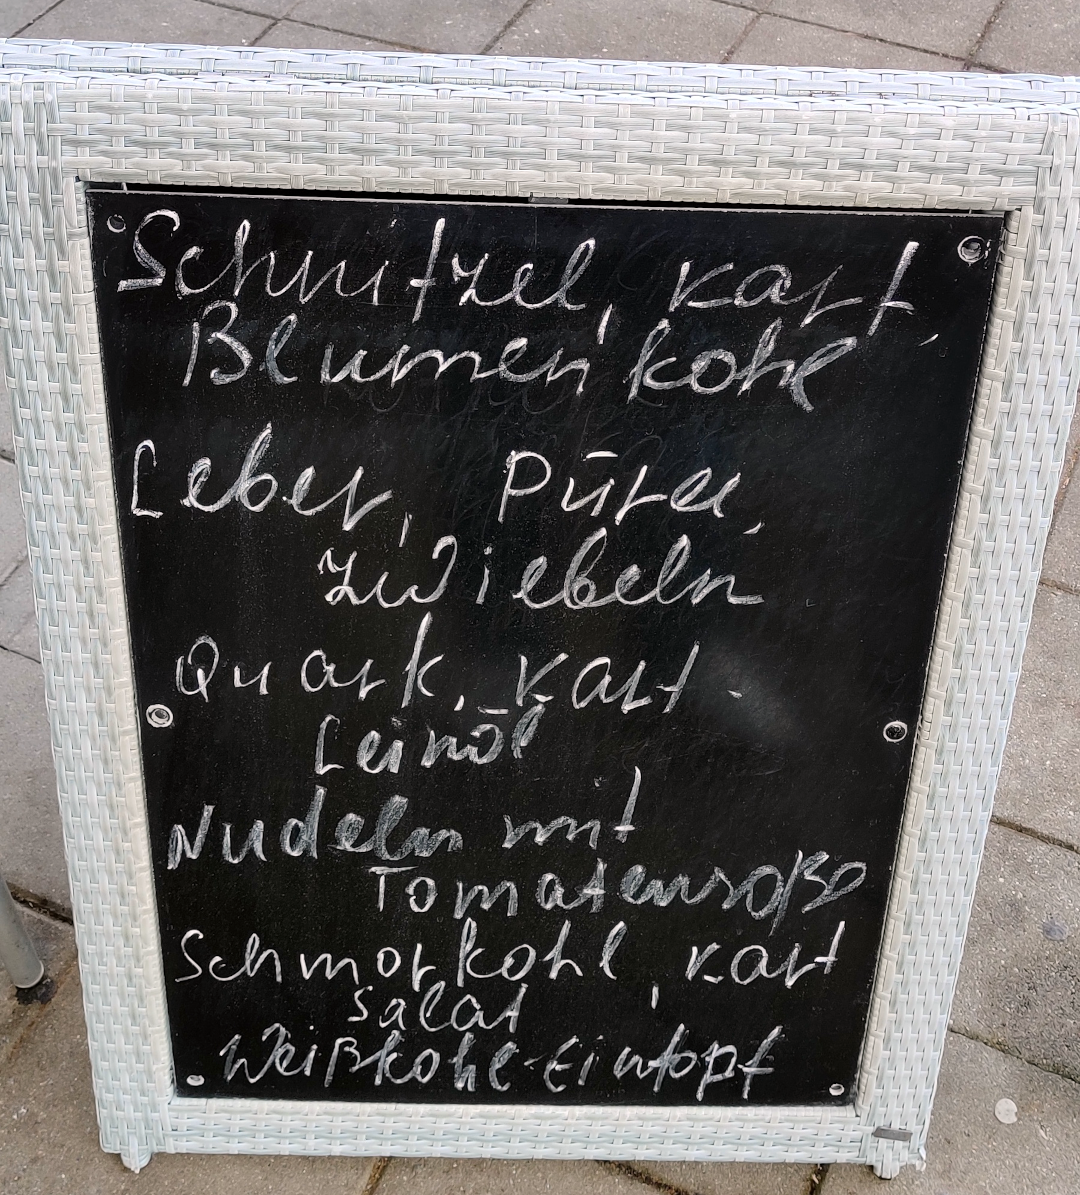 Schnitzel, Kart,
Blumenkohl
Leber, Püree,
Zwiebeln
Quark, Kart.
Leinöl
Nudeln mit
Tomatensoße
Schmorkohl, Kart
Salat
Weißkohl-Eintopf